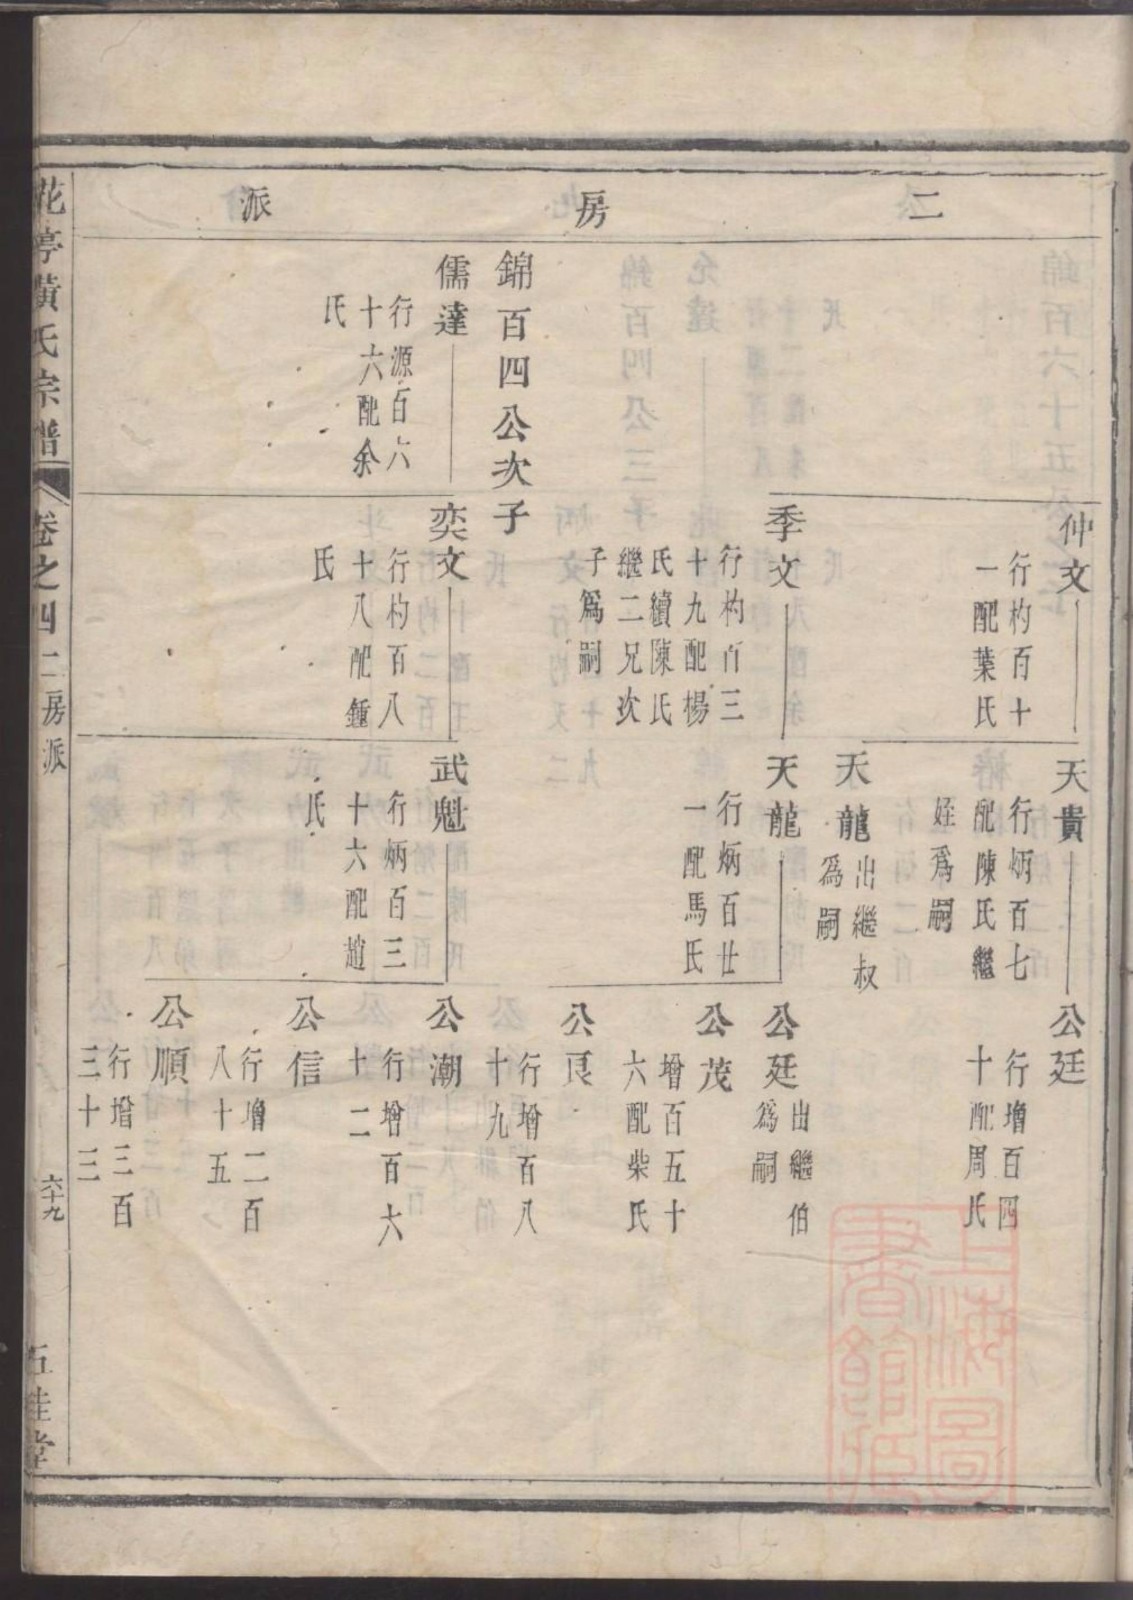 二房派
仲文
行杓百十
一配葉氏
天貴
行炳百七
配陳氏繼
姪爲嗣
公廷
行增百四
十配周氏
天龍
出繼叔
爲嗣
季文
行杓百三
十九配楊
氏續陳氏
繼二兄次
子爲嗣
天龍
行炳百廿
一配馬氏
公廷
出繼伯
爲嗣
公茂
增百五十
六配柴氏
公良
行增百八
十九
錦百四公次子
儒達
行源百六
十六配余
氏
奕文
行杓百八
十八配鍾
氏
武魁
行炳百三
十六配趙
氏
公潮
行增百六
十二
公信
行增二百
八十五
公順
行增三百
三十三
花亭黃氏宗譜
卷之四二房派
六十九
五桂堂
上海圖
書館藏